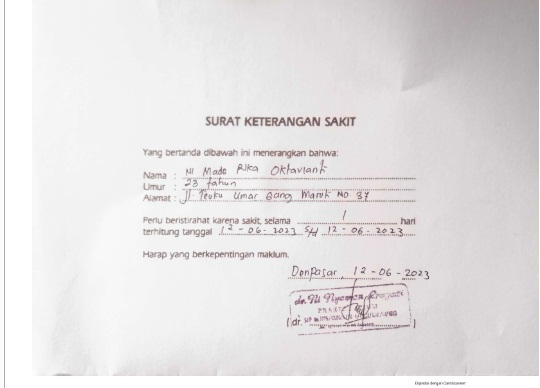 SURAT KETERANGAN SAKIT
Yang bertanda dibawah ini menerangkan bahwa:
Nama : Ni Made Rika Oktavianti
Umur : 23 tahun
Alamat : Jl Teuku Umar Gang Maruti No 37
Perlu beristirahat karena sakit, selama 1 hari
terhitung tanggal 12-06-2023 s/d 12-06-2023
Harap yang berkepentingan maklum.
Denpasar, 12-06-2023
dr. Ni Nyoman
(dr. )